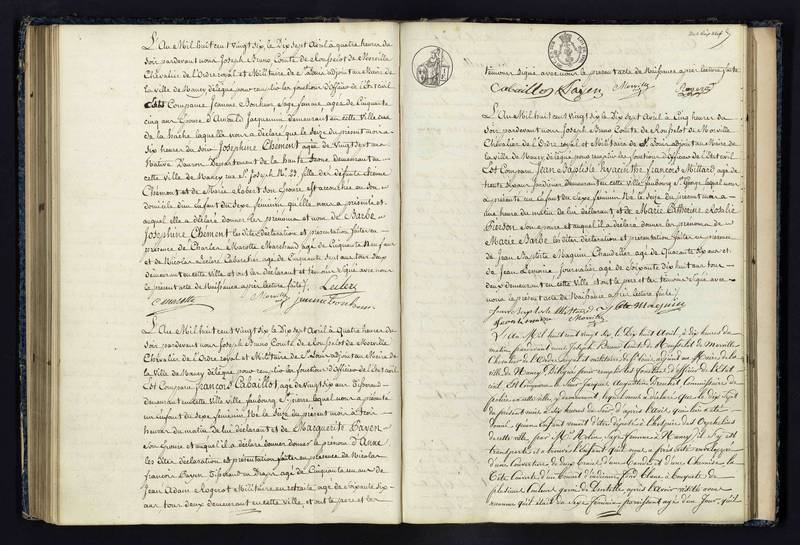 L'An Mil huit cent vingt six, le Dix sept Avril à quatre heures du
soir pardevant nous Joseph Bruno Comte de Rousselot de Morville
Chevalier de l'Ordre royal et Militaire de St Louis adjoint au Maire de
la ville de Nancy délégué pour remplir les fonctions d'Officier de l'Etat civil
Est Comparue Jeanne Bonheur Sage femme agée de Cinquante
cinq ans Epouse d'Amable Jacquemin Demeurant en cette Ville rue
de la hache laquelle nous a déclaré que le Seize du présent mois à
Six heures du soir Josephine Chément agée de Vingt sept ans
Native Département de la haute Saone demeurant en
cette Ville de Nancy rue St Joseph No 23, fille des défunts Etienne
Chément et de Marie Robert son Epouse est accouchée en son
domicile d'un Enfant du Sexe féminin qu'elle nous a présenté et
auquel elle a déclaré donner les prénoms et nom de Barbe
Josephine Chément les dites Déclaration et présentation faites en
présence de Charles Marotte Marchand agé de Cinquante Neuf ans
et de Nicolas Leclerc Cabaretier agé de Cinquante sept ans tous deux
demeurant en cette ville et ont les déclarant et témoins Signé avec nous
le présent acte de Naissance après lecture faite.
C Marotte Leclerc
Morville jeanne Bonheur
L'An Mil huit cent vingt six le Dix sept Avril à Quatre heures du
soir pardevant nous Joseph Bruno Comte de Rousselot de Morville
Chevalier de l'Ordre royal et Militaire de St Louis adjoint au Maire de
la Ville de Nancy délégué pour remplir les fonctions d'Officier de l'Etat civil
Est Comparu François Cabaillot agé de Vingt six ans
demeurant en cette Ville, faubourg St Pierre lequel nous a présenté
un Enfant du Sexe féminin Né le Seize du présent mois à trois
heures du matin de lui déclarant et de Marguerite Payen
son Epouse et auquel il a déclaré donner le prénom d'Anne
les dites déclaration et présentation faites en présence de Nicolas
François Payen agé de Cinquante un ans et de
Jean Adam Rogerot Militaire en retraite agé de Soixante six
ans tous deux demeurant en cette Ville, et ont le père et les
témoins Signé avec nous le présent acte de Naissance après lecture faite
Cabaillot Payen Morville Rogerot
L'An Mil huit cent vingt six le Dix sept Avril à Cinq heures du
soir pardevant nous Joseph Bruno Comte de Rousselot de Morville
Chevalier de l'Ordre royal et Militaire de St Louis adjoint au Maire de
la Ville de Nancy délégué pour remplir les fonctions d'Officier de l'Etat civil
Est Comparu Jean Baptiste Hyacinthe François Millard agé de
trente six ans Jardinier demeurant en cette ville faubourg St George lequel nous
a présenté un Enfant du Sexe féminin Né le Seize du présent mois à
une heure du matin de lui déclarant et de Marie Catherine Rosalie
Pierson son Epouse et auquel il a déclaré donner les prénoms de
Marie Barbe les dites déclaration et présentation faites en présence
de Jean Baptiste Maguin Chandelier agé de Quarante six ans et
de Jean Lemoine Journalier agé de Soixante Dix huit ans tous
deux demeurant en cette Ville et ont le père et les témoins Signé avec
nous le présent acte de Naissance après lecture faite
Morville
L'An Mil huit cent vingt six le Dix huit Avril, à dix heures du
matin pardevant nous Joseph Bruno Comte de Rousselot de Morville
Chevalier de l'Ordre royal et militaire de St Louis, adjoint au Maire de la
ville de Nancy délégué pour remplir les fonctions d'officier de l'Etat
civil, Est Comparu le Sieur Jacques Commissaire de
police en cette ville, y demeurant, lequel nous a déclaré que le Dix Sept
du présent mois à dix heures du soir d'après l'avis que lui a été
donné, qu'un Enfant venait d'être déposé à l'hospice des Orphelins
de cette ville, par Me Sage femme à Nancy, il s'y est
transporté et a trouvé l'Enfant qu'il nous a présenté enveloppé
d'une couverture de deux et d'une Chemise, la
tête couverte d'un bonnet d'indienne fond blanc à bouquets de
plusieurs couleurs garni de Dentelle, après l'avoir visité avons
reconnu qu'il était du Sexe féminin, paraissant agé d'un Jour, qu'il